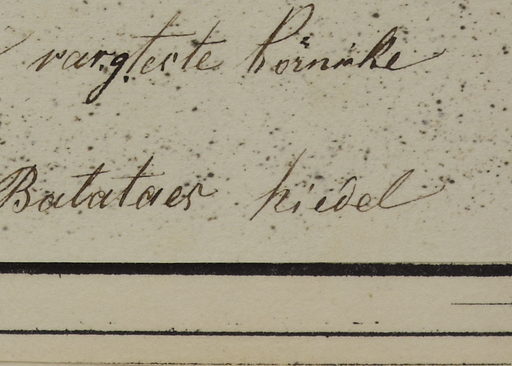 vargteste Körnike
Batataes hiedel